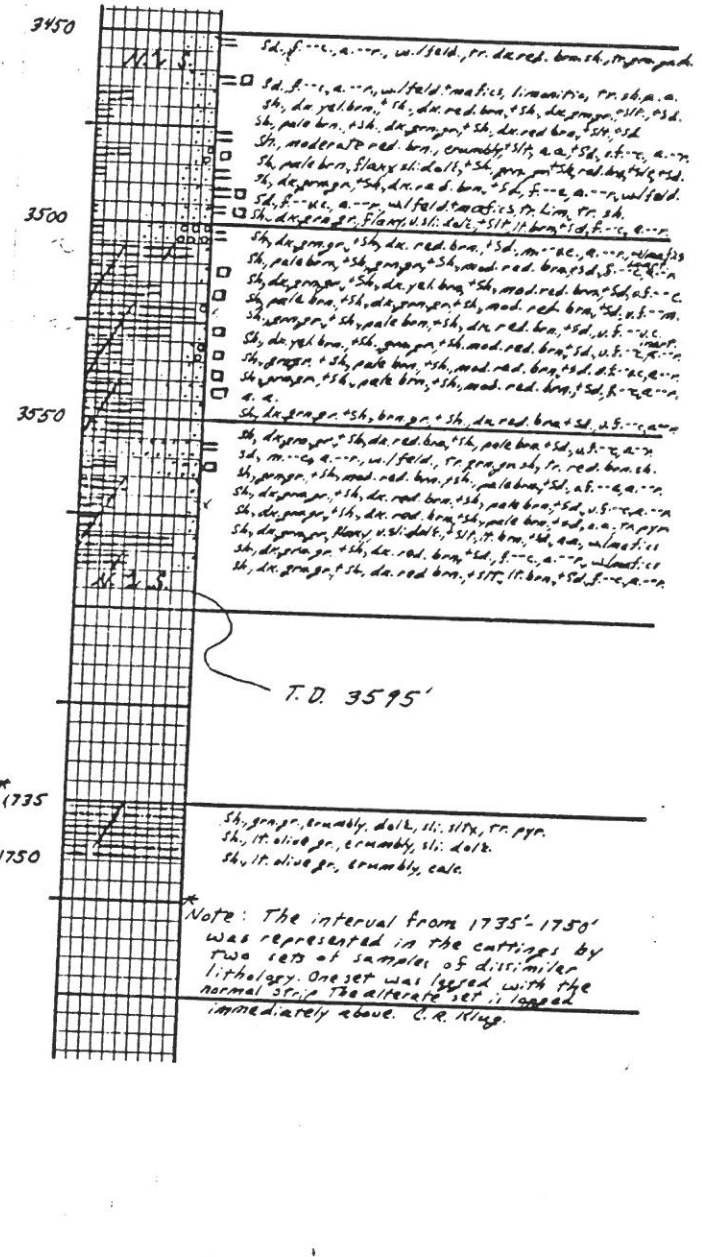 3450
N. S.
Sd, f.--c, a.--r., w./feld., tr. dk. red. brn. sh.,
Sd, f.--c, a.--r, w/feld + mafics, limonitic, tr. sh. a. a.
Sh, dk. yel. brn., + sh, dk. red. brn, + sh, dk. grn. gr, + slt, + sd.
Sh, pale brn, + sh, dk. grn. gr, + sh, dk. red brn, + slt, + sd
Sh, moderate red. brn., crumbly, + slt, a.a., + sd, v.f.--c, a.--r.
Sh, pale brn, flaky, sli. dolt, + sh, grn. gr, + sh, red. brn, + slt, + sd.
Sh, dk. grn. gr, + sh, dk. red. brn, + sd, f.--c, a.--r, w/feld.
Sd, f.--vc, a.--r, w/feld + mafics, tr. lim, tr. sh.
3500
Sh, dk. grn. gr, flaky, v. sli. dolt, + slt, lt. brn, + sd, f.--c, a.--r.
Sh, dk. grn. gr, + sh, dk. red. brn, + sd, m.--vc, a.--r, w/mafics
Sh, pale brn, + sh, grn. gr, + sh, mod. red. brn, + sd, f.--c, a.--r
Sh, dk. grn. gr, + sh, dk. yel. brn, + sh, mod. red. brn, + sd, v.f.--c.
Sh, pale brn, + sh, dk. grn. gr, + sh, mod. red. brn, + sd, v.f.--m.
Sh, grn. gr, + sh, pale brn, + sh, dk. red. brn, + sd, v.f.--v.c.
Sh, dk. yel. brn, + sh, grn. gr, + sh, mod. red. brn, + sd, v.f.--c, a.--r.
Sh, grn. gr, + sh, pale brn, + sh, mod. red. brn, + sd, v.f.--vc, a.--r.
Sh, grn. gr, + sh, pale brn, + sh, mod. red. brn, + sd, f.--c, a.--r.
a. a.
3550
Sh, dk. grn. gr. + sh, brn. gr. + sh, dk. red. brn + sd, v.f.--c, a.--r
Sh, dk. grn. gr, + sh, dk. red. brn, + sh, pale brn + sd, v.f.--c, a.--r.
Sd, m.--c, a.--r, w./feld., tr. grn. gr. sh, tr. red. brn. sh.
Sh, grn. gr. + sh, mod. red. brn, + sh, pale brn, + sd, v.f.--c, a.--r.
Sh, dk. grn. gr, + sh, dk. red. brn, + sh, pale brn, + sd, v.f.--c, a.--r
Sh, dk. grn. gr, + sh, dk. red. brn, + sh, pale brn, + sd, a.a. tr. pyr
Sh, dk. grn. gr, flaky, v. sli. dolt, + slt, lt. brn, + sd, aa, w/mafics
Sh, dk. grn. gr. + sh, dk. red. brn, + sd, f.--c, a.--r, w/mafics
N. S.
Sh, dk. grn. gr, + sh, dk. red brn, + slt, lt. brn, + sd, f.--c, a.--r
T. D. 3595'
*
1735
Sh, grn. gr., crumbly, dolt, sli. slty, tr. pyr.
Sh, lt. olive gr., crumbly, sli. dolt.
1750
Sh, lt. olive gr., crumbly, calc.
*
Note: The interval from 1735'-1750'
was represented in the cuttings by
two sets of samples of dissimilar
lithology. One set was logged with the
normal strip. The alterate set is logged
immediately above. C.R. Klug.